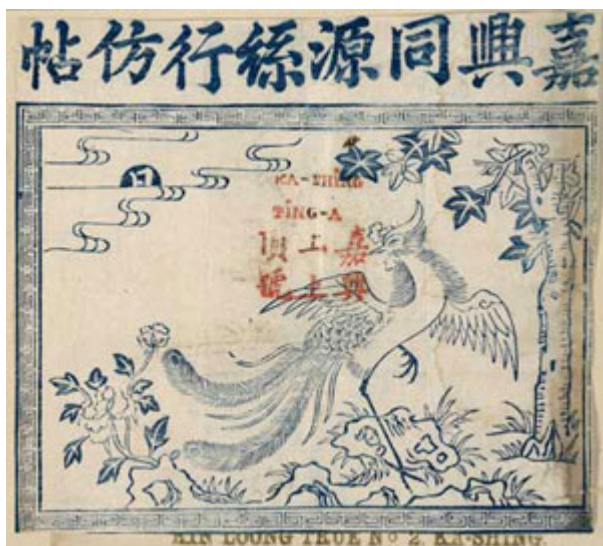 嘉興同源絲行仿帖
日
KA-SHING
TING-A
嘉興
上上
頂號
LOONG TRUE No 2. KA-SHING.